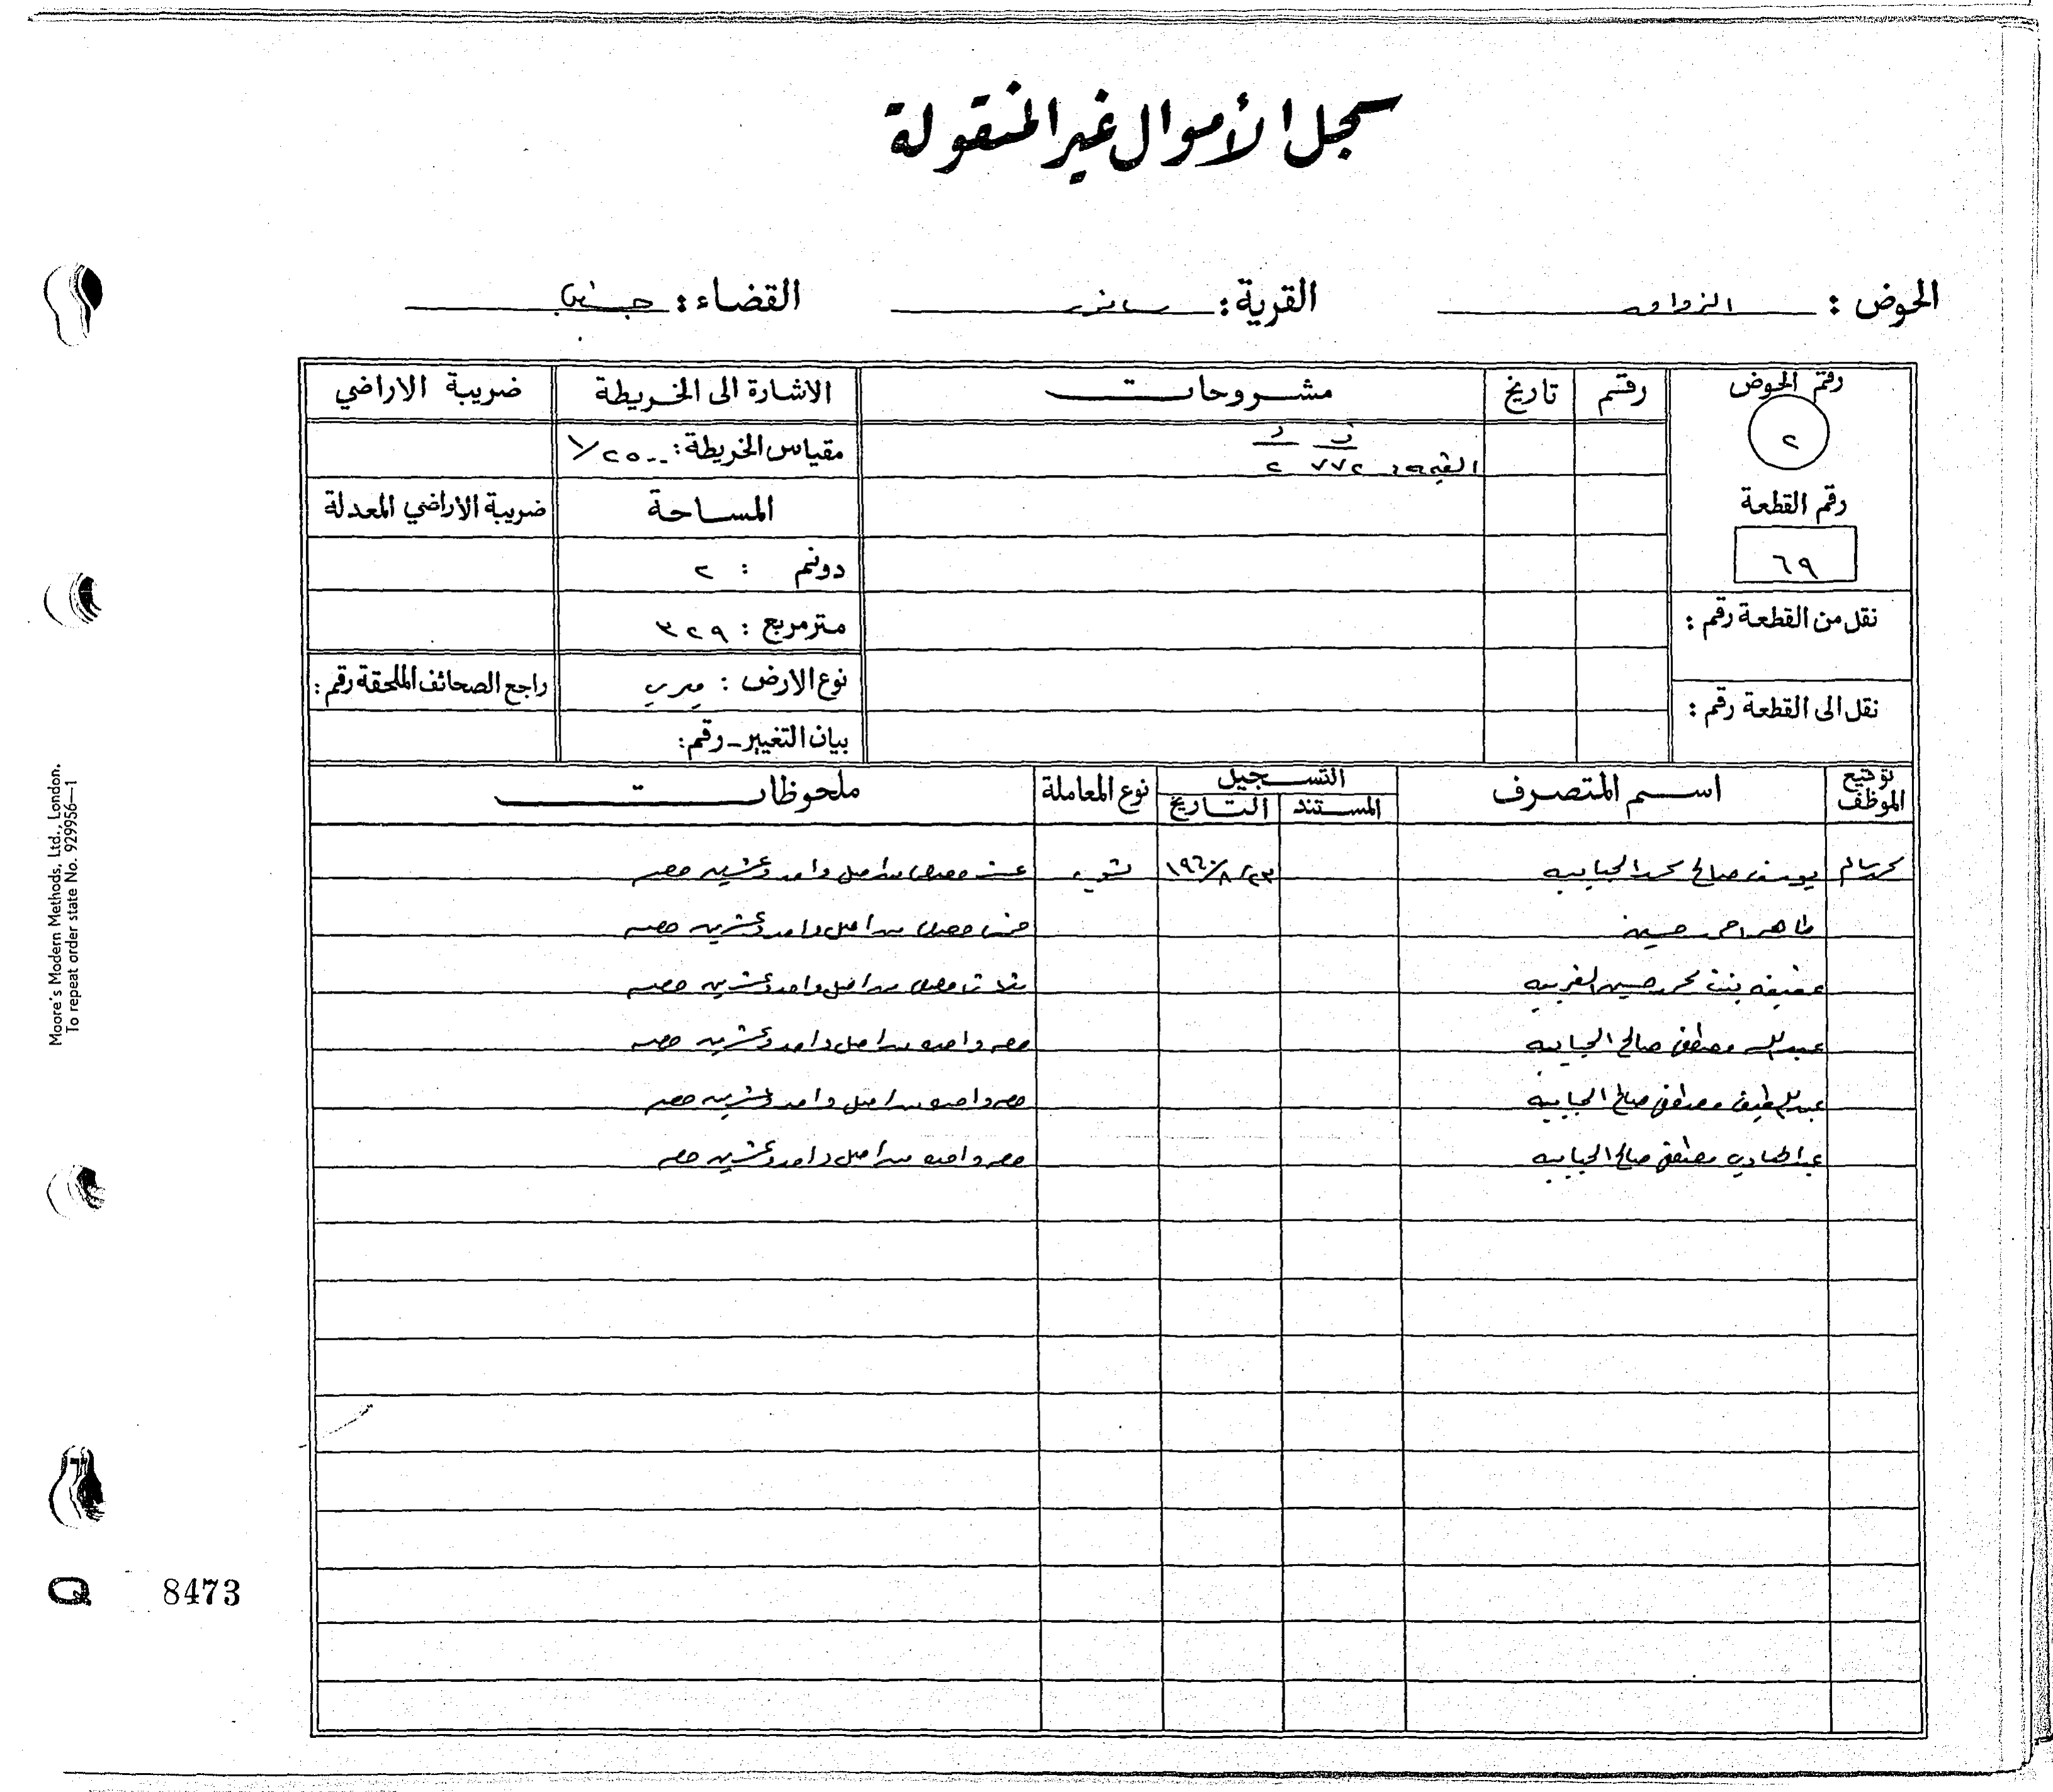 سجل الأموال غير المنقولة
الحوض : القرية : سانور القضاء : جنين
رقم الحوض رقم تاريخ مشروحات الاشارة الى الخريطة ضريبة الاراضي
٢ ف د مقياس الخريطة : ١/٢٥٠٠
القيمة ٧٧٢ ٢
رقم القطعة المساحة ضريبة الاراضي المعدلة
٦٩ دونم : ٢
نقل من القطعة رقم : متر مربع : ٣٢٩
نوع الارض : ميري راجع الصحائف الملحقة رقم :
نقل الى القطعة رقم : بيان التغيير - رقم :
توقيع الموظف اسم المتصرف التسجيل نوع المعاملة ملحوظات
المستند التاريخ
يوسف صالح محمد الحبايبه ٢٣/٨/١٩٦٠ تسويه عشر حصص من اصل واحد وعشرين حصه
طاهر احمد حسين خمس حصص من اصل واحد وعشرين حصه
عفيفه بنت محمد حسين ثلاث حصص من اصل واحد وعشرين حصه
عبدالله مصطفى صالح الحبايبه حصه واحده من اصل واحد وعشرين حصه
عبداللطيف مصطفى صالح الحبايبه حصه واحده من اصل واحد وعشرين حصه
عبدالهادي مصطفى صالح الحبايبه حصه واحده من اصل واحد وعشرين حصه
Moore's Modern Methods, Ltd., London.
To repeat order state No. 929956—1
Q 8473